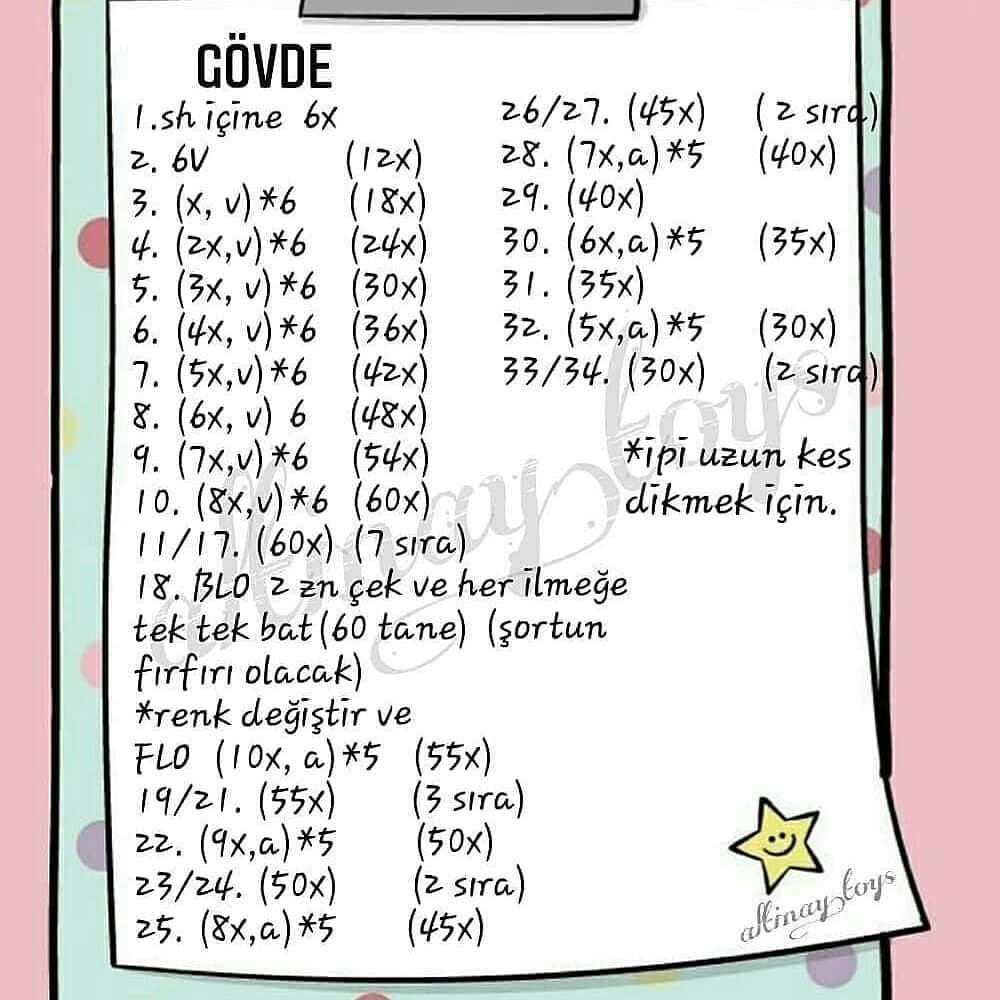 GÖVDE
1.sh içine 6x
2. 6V (12x)
3. (x, v)*6 (18x)
4. (2x,v)*6 (24x)
5. (3x, v)*6 (30x)
6. (4x, v)*6 (36x)
7. (5x,v)*6 (42x)
8. (6x, v) 6 (48x)
9. (7x,v)*6 (54x)
10. (8x,v)*6 (60x)
11/17. (60x) (7 sıra)
18. BLO 2 zn çek ve her ilmeğe
tek tek bat (60 tane) (şortun
fırfırı olacak)
*renk değiştir ve
FLO (10x, a)*5 (55x)
19/21. (55x) (3 sıra)
22. (9x,a)*5 (50x)
23/24. (50x) (2 sıra)
25. (8x,a)*5 (45x)
26/27. (45x) (2 sıra)
28. (7x,a)*5 (40x)
29. (40x)
30. (6x,a)*5 (35x)
31. (35x)
32. (5x,a)*5 (30x)
33/34. (30x) (2 sıra)
*ipi uzun kes
dikmek için.
altinay toys
altinay toys